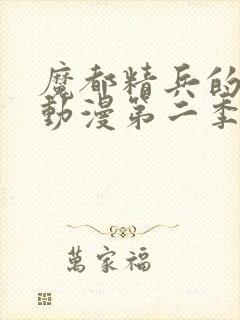 魔都精兵的
動漫第二季
萬家福